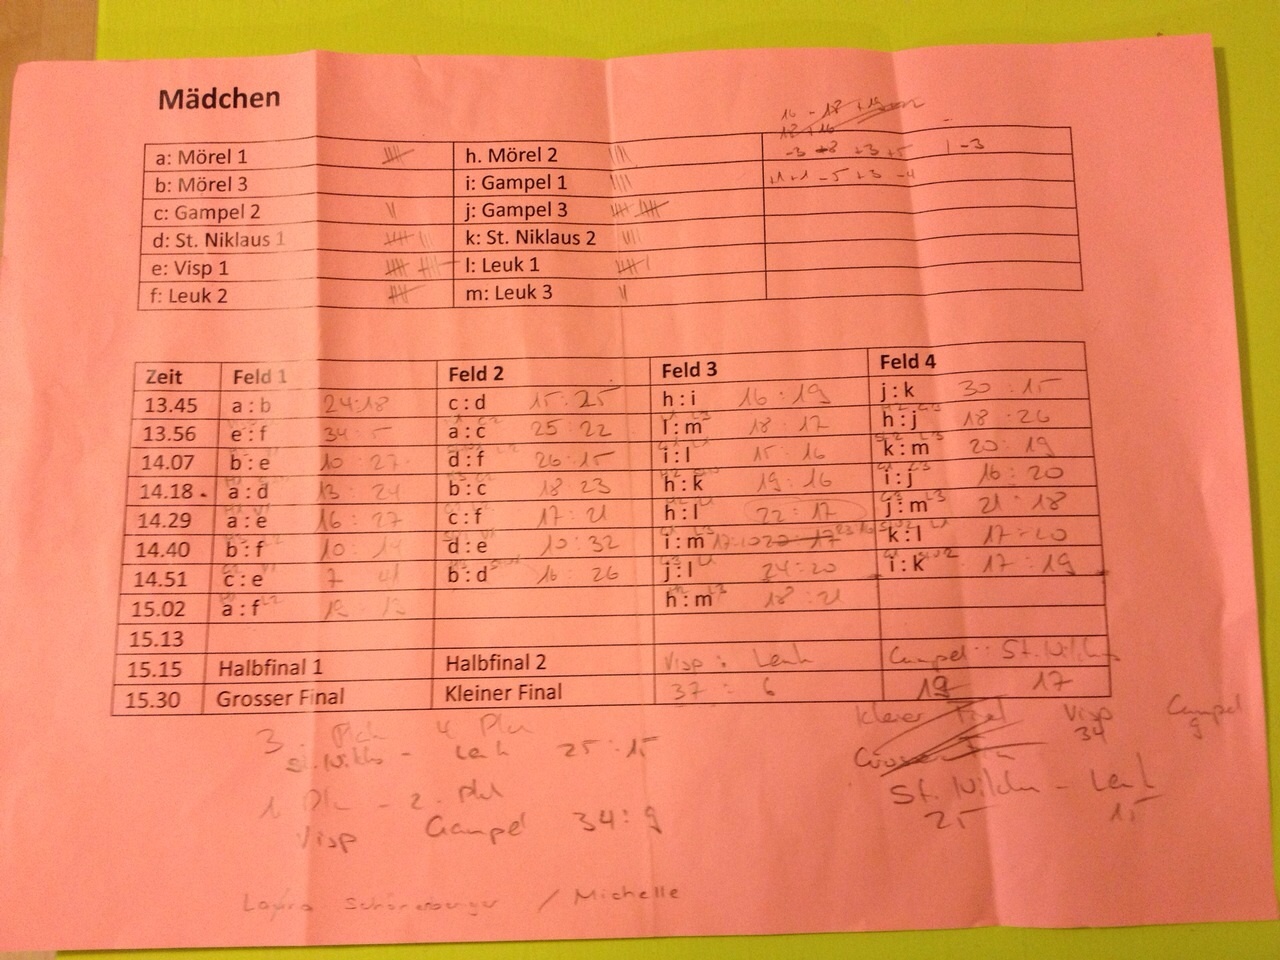 Mädchen
16 - 17 + 19
-3 +8 +3 +5 | -3
a: Mörel 1 h. Mörel 2
+1 +1 -5 +3 -4
b: Mörel 3 i: Gampel 1
c: Gampel 2 j: Gampel 3
d: St. Niklaus 1 k: St. Niklaus 2
e: Visp 1 l: Leuk 1
f: Leuk 2 m: Leuk 3
Zeit Feld 1 Feld 2 Feld 3 Feld 4
13.45 a : b 24:18 c : d 15:25 h : i 16:19 j : k 30:15
13.56 e : f 34:5 a : c 25:22 l : m 18:17 h : j 18:26
14.07 b : e 10:27 d : f 26:15 i : l 15:16 k : m 20:19
14.18 a : d 13:24 b : c 18:23 h : k 19:16 i : j 16:20
14.29 a : e 16:27 c : f 17:21 h : l 22:17 j : m 21:18
14.40 b : f 10: d : e 10:32 i : m k : l 17:20
14.51 c : e 7 41 b : d 16:26 j : l 24:20 i : k 17:19
15.02 a : f h : m 18:21
15.13
15.15 Halbfinal 1 Halbfinal 2 Visp : Leuk Gampel : St. Niklaus
15.30 Grosser Final Kleiner Final 37 : 6 19 17
3. 4 Visp Gampel
Leuk 25:15 34 9
1 - 2. St. Niklaus - Leuk
Visp Gampel 34:9 25 15
/ Michelle